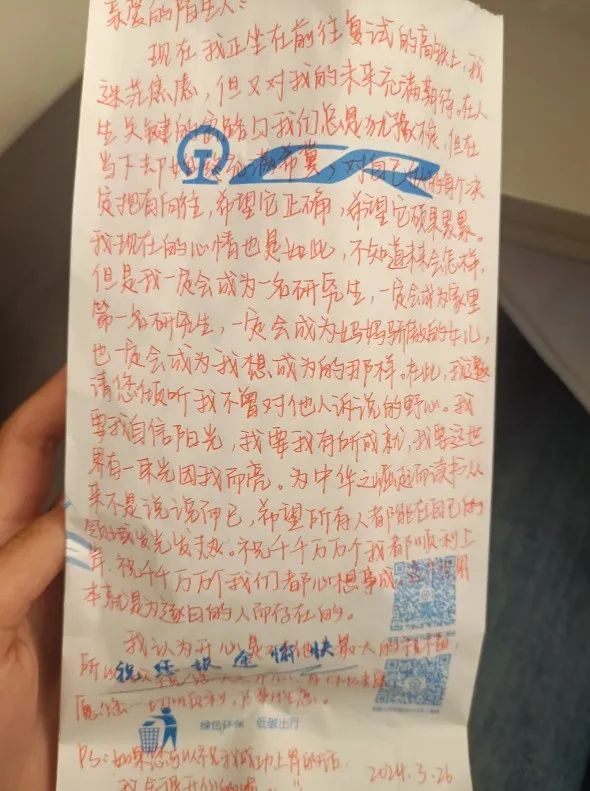 亲爱的陌生人：
现在我正坐在前往复试的高铁上，我
迷茫焦虑，但又对我的未来充满期待。在人
生关键的岔路口我们总是犹豫不决，但在
当下却始终充满希冀，对自己做的每个决
定抱有向往，希望它正确，希望它硕果累累。
我现在的心情也是如此，不知道未来会怎样，
但是我一定会成为一名研究生，一定会成为家里
第一名研究生，一定会成为妈妈骄傲的女儿，
也一定会成为我想成为的那样。在此，我邀
请您倾听我不曾对他人诉说的野心。我
要我自信阳光，我要我有所成就，我要这世
界有一束光因我而亮。为中华之崛起而读书从
来不是说说而已，希望所有人都能在自己的
领域发光发热。祝千千万万个我都顺利上
岸，祝千千万万个我们都心想事成。
本就是为逐日的人而存在的。
我认为开心是对其他人最大的
所以
祝您旅途愉快
愿您一切顺利，
绿色环保 低碳出行
PS：如果您可以祝我成功上岸的话，
我会很开心的
2024.3.26